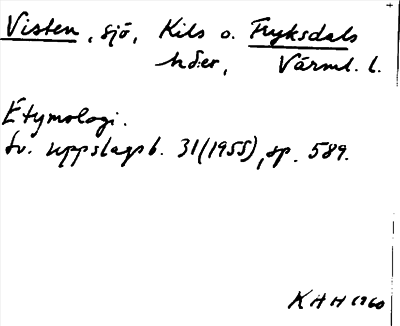 Visten, sjö, Kils o. Fryksdals
hder, Värml. l.
Etymologi.
Sv. uppslagsb. 31(1955), sp. 589.
KHH 1960